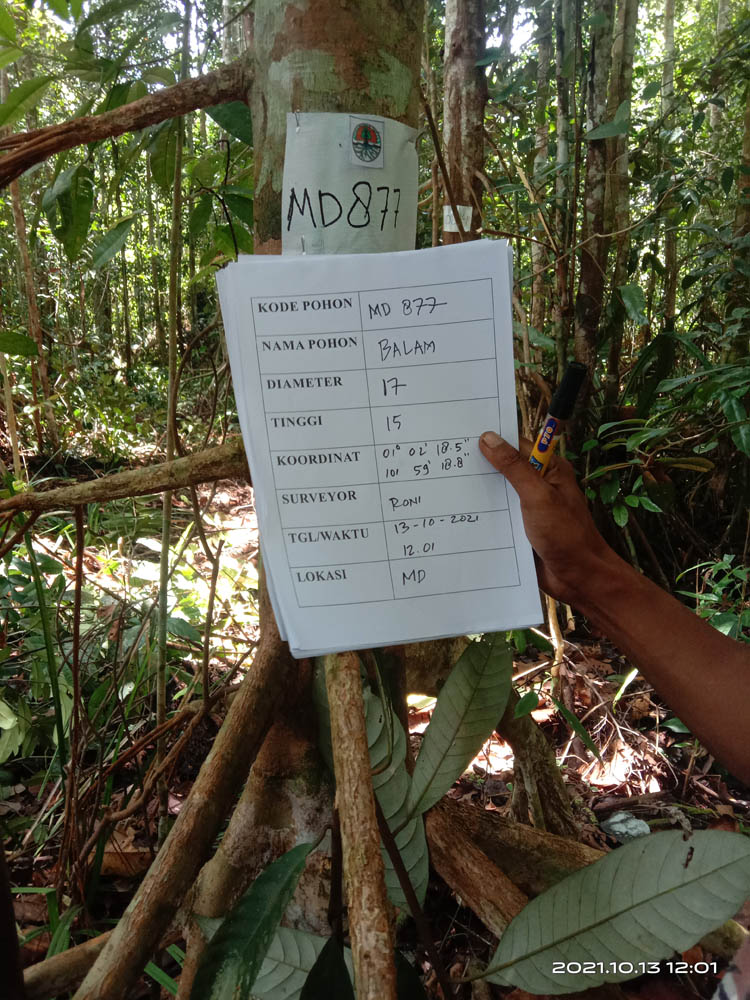 MD877
KODE POHON MD 877
NAMA POHON BALAM
DIAMETER 17
TINGGI 15
KOORDINAT 01° 02' 18.5"
101 59' 18.8"
SURVEYOR RONI
TGL/WAKTU 13-10-2021
12.01
LOKASI MD
2021.10.13 12:01